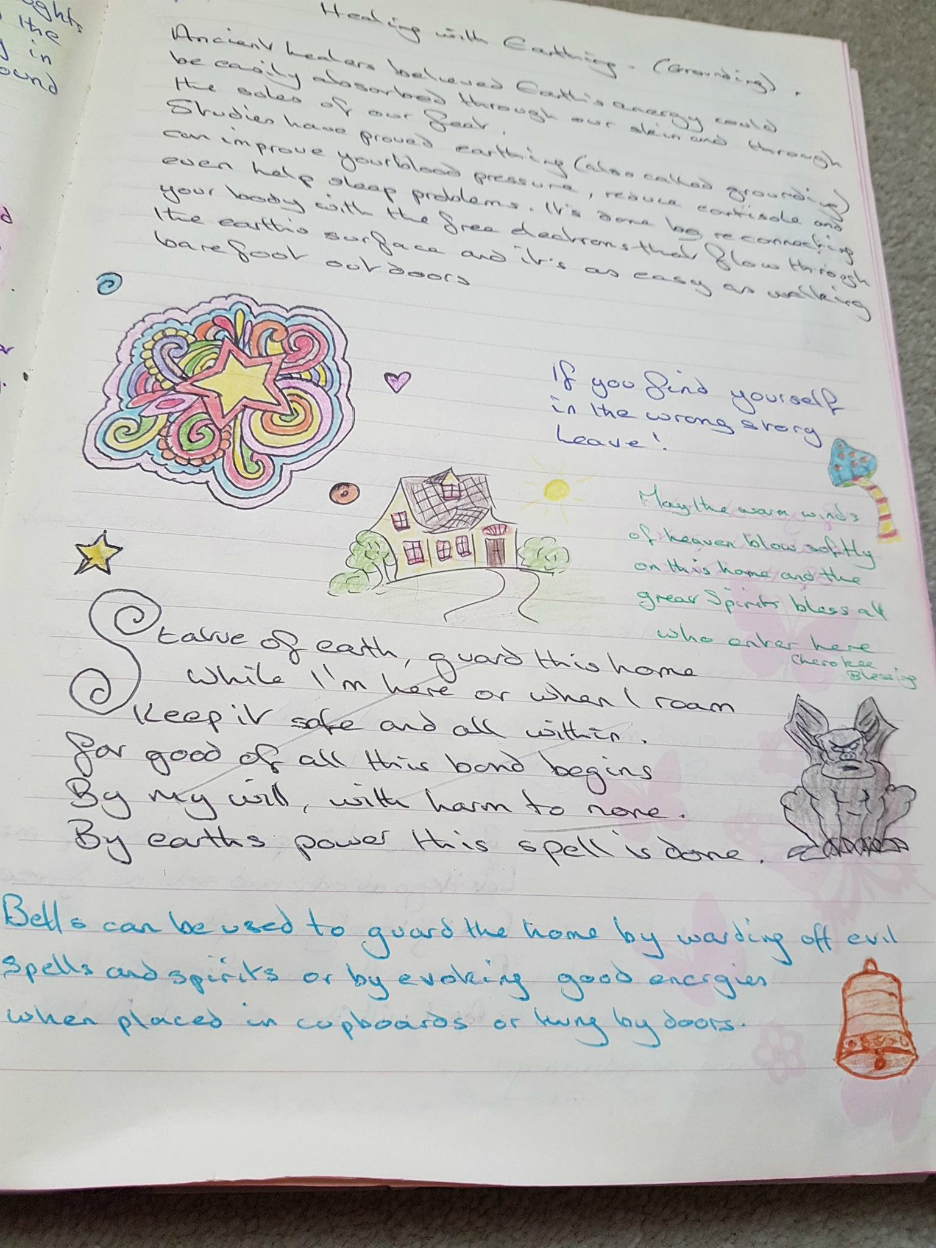 ughts
the
in
ound
Healing with Earthing. (Grounding).
Ancient healers believed Earth's energy could
be easily absorbed through our skin and through
the soles of our feet.
Studies have proved earthing (also called grounding)
can improve your blood pressure, reduce cortisole and
even help sleep problems. It's done be reconnecting
your body with the free electrons that flow through
the earth's surface and it's as easy as walking
barefoot outdoors
If you find yourself
in the wrong story
Leave!
May the warm winds
of heaven blow softly
on this home and the
great Spirits bless all
who enter here
Cherokee
Blessing
Statue of earth, guard this home
While I'm here or when I roam
Keep it safe and all within.
For good of all this bond begins
By my will, with harm to none.
By earths power this spell is done.
Bells can be used to guard the home by warding off evil
spells and spirits or by evoking good energies
when placed in cupboards or hung by doors.